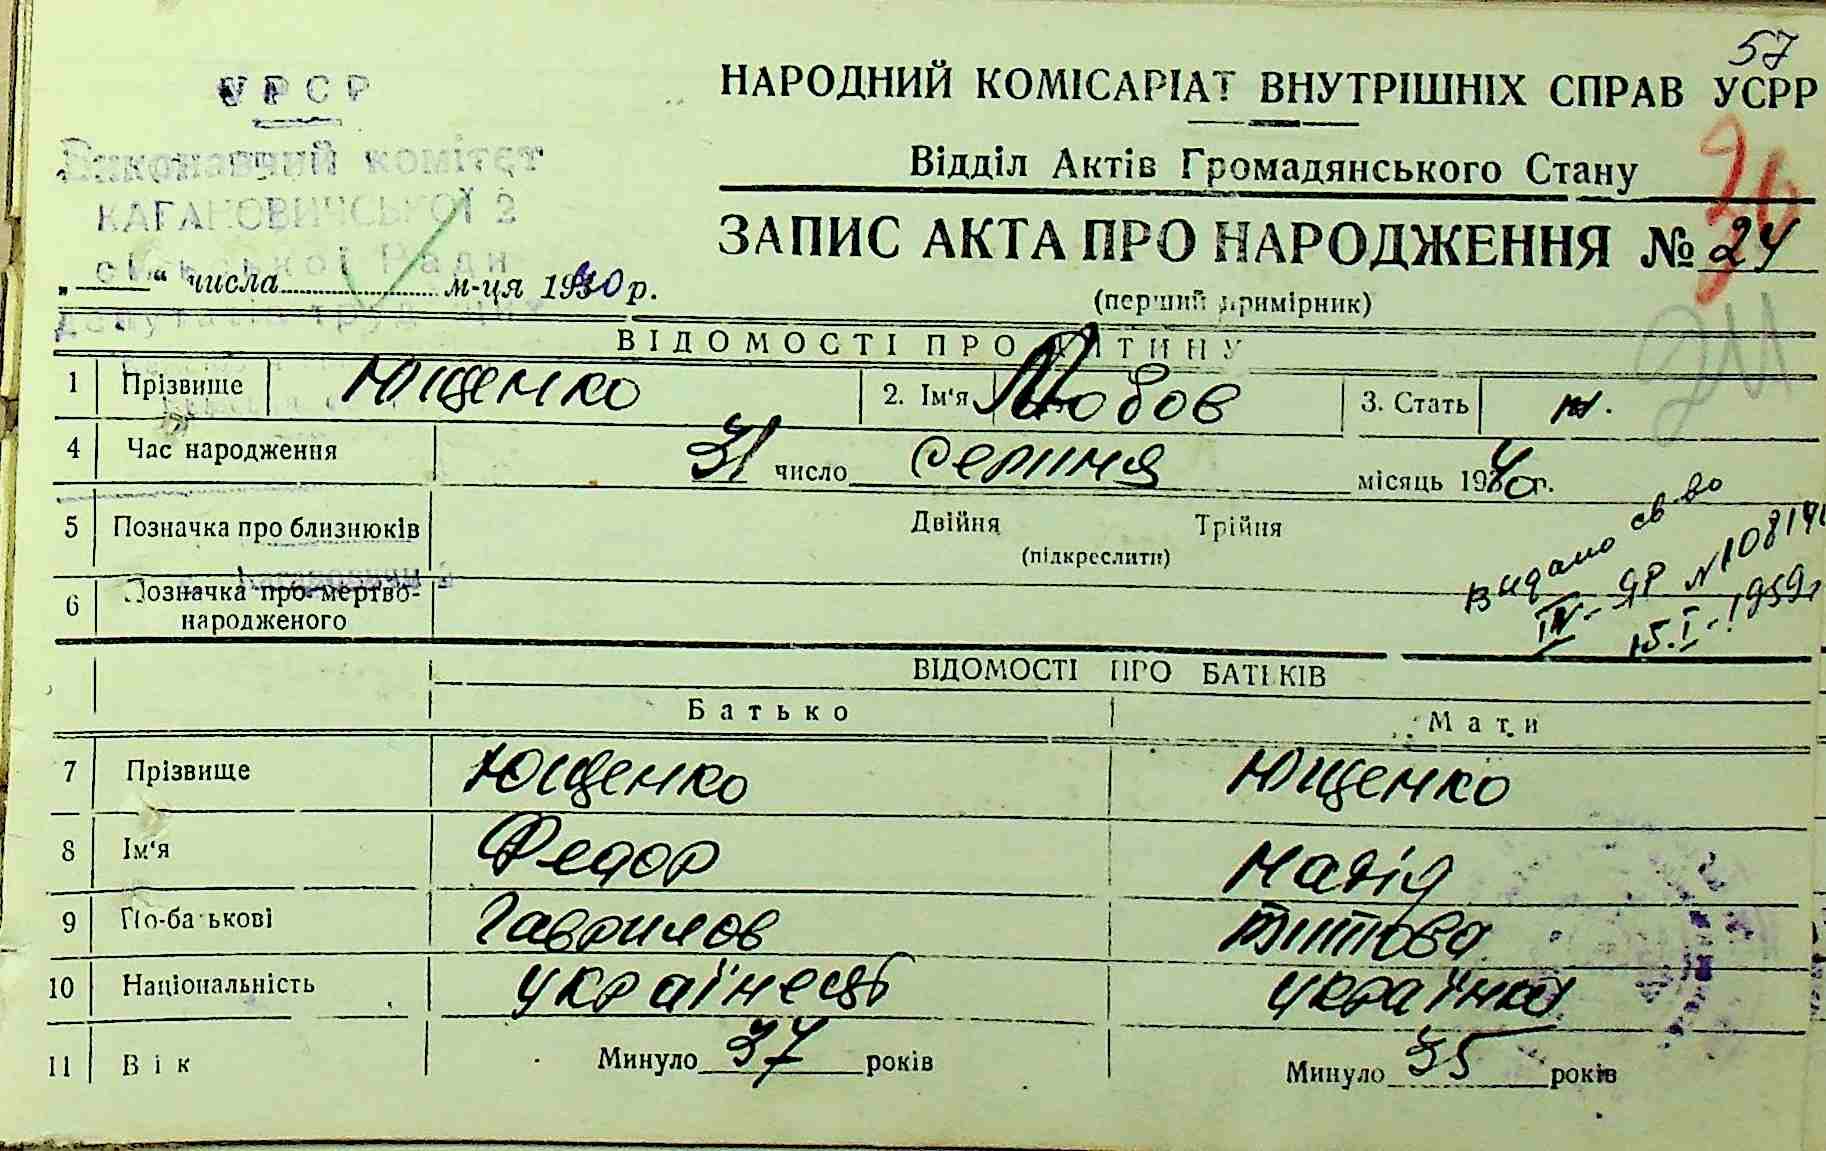 57
УРСР
НАРОДНИЙ КОМІСАРІАТ ВНУТРІШНІХ СПРАВ УСРР
Виконавчий комітет
Відділ Актів Громадянського Стану
КАГАНОВИЧСЬКОЇ 2
сільської Ради
ЗАПИС АКТА ПРО НАРОДЖЕННЯ № 24
„ “ числа м-ця 1940 р.
(перший примірник)
депутатів труд
ВІДОМОСТІ ПРО ДИТИНУ
1 Прізвище Ющенко 2. Ім'я Любов 3. Стать ж.
4 Час народження 31 число серпня місяць 1940 г.
5 Позначка про близнюків Двійня Трійня
(підкреслити)
Видано св-во
IV-ЯР N
15.I-1959г
6 Позначка про мертво-
народженого
ВІДОМОСТІ ПРО БАТЬКІВ
Батько Мати
7 Прізвище Ющенко Ющенко
8 Ім'я Федор Марія
9 По-батькові Гаврилов Титова
10 Національність українець українка
11 Вік Минуло 37 років Минуло 35 років